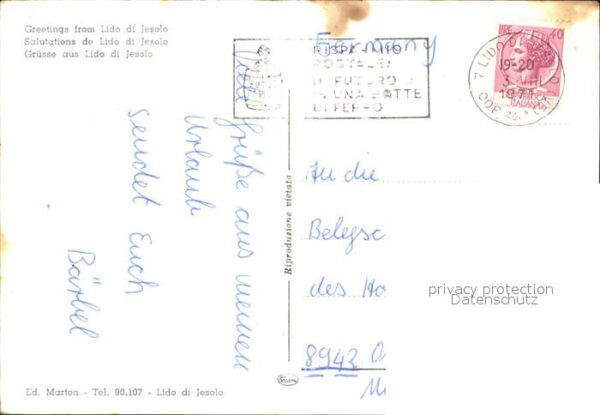 Greetings from Lido di Jesolo
Salutations de Lido di Jesolo
Grüsse aus Lido di Jesolo
Germany
RISPARMIO
POSTALE:
IL FUTURO
IN UNA BOTTE
DI FERRO
LIRE 40
ITALIANE
7 LIDO DI JESOLO
19-20
3.VIII
1971
Viele Grüße aus meinem
Urlaub
sendet Euch
Bärbel
Riproduzione vietata
An die
Belegsc
des Ho
8942 O
privacy protection
Datenschutz
Ed. Marton - Tel. 90.107 - Lido di Jesolo